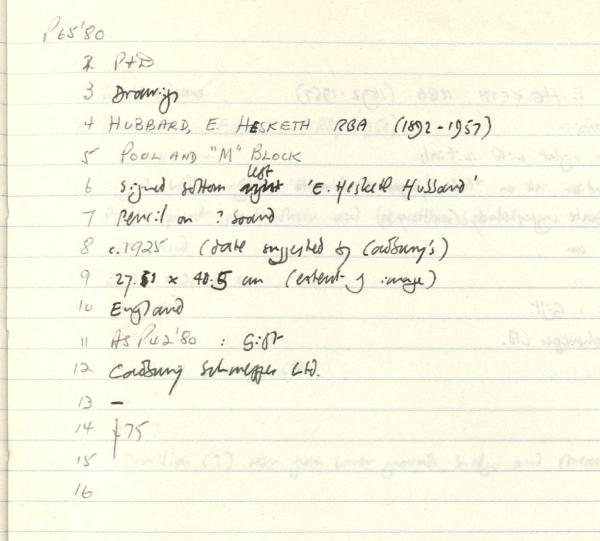 P65'80
2 P+D
3 Drawings
4 HUBBARD, E. HESKETH RBA (1892-1957)
5 POOL AND "M" BLOCK
6 signed bottom left 'E. Hesketh Hubbard'
7 Pencil on ? board
8 c.1925 (date suggested by Cadbury's)
9 27. x 40.5 cm (extent of image)
10 England
11 AS P42'80 : Gift
12 Cadbury Schweppes Ltd.
13 –
14 £75
15
16